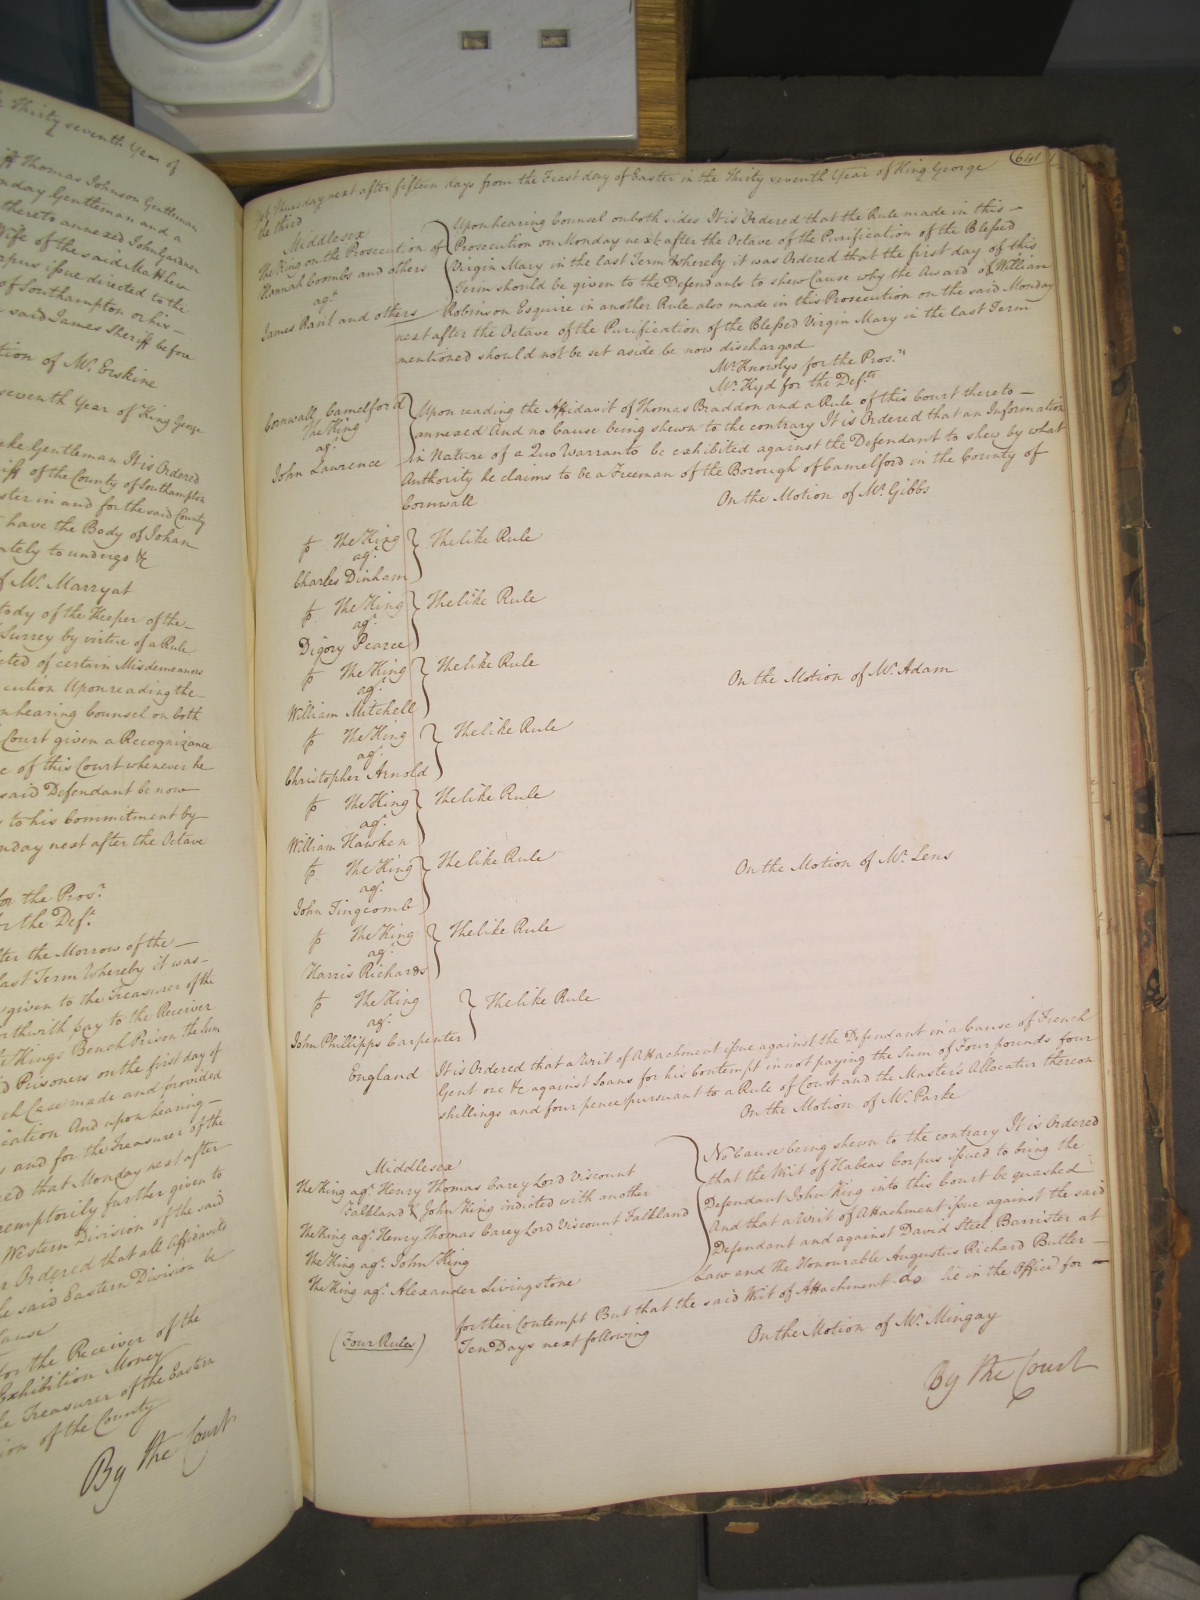 Thirty seventh Year of
Thomas Johnson Gentleman
Gentleman and a
thereto annexed John Gardner
Wife of the said Matthew
issue directed to the
of Southampton or his
said James Sheriff before
of Mr. Erskine
seventh Year of King George
Gentleman It is Ordered
of the County of Southampton
in and for the said County
have the Body of Johan
to undergo &c
Mr. Marryat
of the Keeper of the
Surrey by virtue of a Rule
of certain Misdemeanors
Upon reading the
hearing Counsel on both
Court given a Recognizance
of this Court whenever he
said Defendant be now
to his Commitment by
next after the Octave
for the Pros.n
the Def.t
the Morrow of the
last Term Whereby it was
given to the Treasurer of the
pay to the Receiver
Kings Bench Prison the Sum
Prisoners on the first day of
Case made and provided
And upon hearing
and for the Treasurer of the
that Monday next after
further given to
Western Division of the said
Ordered that all Affidavits
said Eastern Division be
for the Receiver of the
Exhibition Money
Treasurer of the Eastern
of the County
By the Court
641
Thursday next after fifteen days from the Feast day of Easter in the Thirty seventh Year of King George
the third
Middlesex
The King on the Prosecution of
Hannah Coombs and others
agt.
James and others
Upon hearing Counsel on both sides It is Ordered that the Rule made in this
Prosecution on Monday next after the Octave of the Purification of the Blessed
Virgin Mary in the last Term Whereby it was Ordered that the first day of this
Term should be given to the Defendants to shew Cause why the Award of William
Robinson Esquire in another Rule also made in this Prosecution on the said Monday
next after the Octave of the Purification of the Blessed Virgin Mary in the last Term
mentioned should not be set aside be now discharged
Mr. Knowlys for the Pros.n
Mr. Kyd for the Def.ts
Cornwall Camelford
The King
agt.
John Lawrence
Upon reading the Affidavit of Thomas Braddon and a Rule of this Court thereto
annexed And no Cause being shewn to the contrary It is Ordered that an Information
in Nature of a Quo Warranto be exhibited against the Defendant to shew by what
Authority he claims to be a Freeman of the Borough of Camelford in the County of
Cornwall
On the Motion of Mr. Gibbs
The King
agt.
Charles Dinham
The like Rule
The King
agt.
Digory Pearce
The like Rule
The King
agt.
William Mitchell
The like Rule
On the Motion of Mr. Adam
The King
agt.
Christopher Arnold
The like Rule
The King
agt.
William Hawken
The like Rule
The King
agt.
John Tingcomb
The like Rule
On the Motion of Mr. Lens
The King
agt.
Harris Richards
The like Rule
The King
agt.
John Phillipps Carpenter
The like Rule
England
It is Ordered that a Writ of Attachment issue against the Defendant in a Cause of French
Gent one &c against Soans for his Contempt in not paying the Sum of Four pounds four
shillings and four pence pursuant to a Rule of Court and the Masters Allocatur thereon
On the Motion of Mr. Parke
Middlesex
The King agt. Henry Thomas Carey Lord Viscount
Falkland & John King indicted with another
The King agt. Henry Thomas Carey Lord Viscount Falkland
The King agt. John King
The King agt. Alexander Livingstone
(Four Rules)
No Cause being shewn to the contrary It is Ordered
that the Writ of Habeas Corpus issued to bring the
Defendant John King into this Court be quashed
And that a Writ of Attachment issue against the said
Defendant and against David Steel Barrister at
Law and the Honourable Augustus Richard Butler
for their Contempt But that the said Writ of Attachment do lie in the Office for
Ten Days next following
On the Motion of Mr. Mingay
By the Court